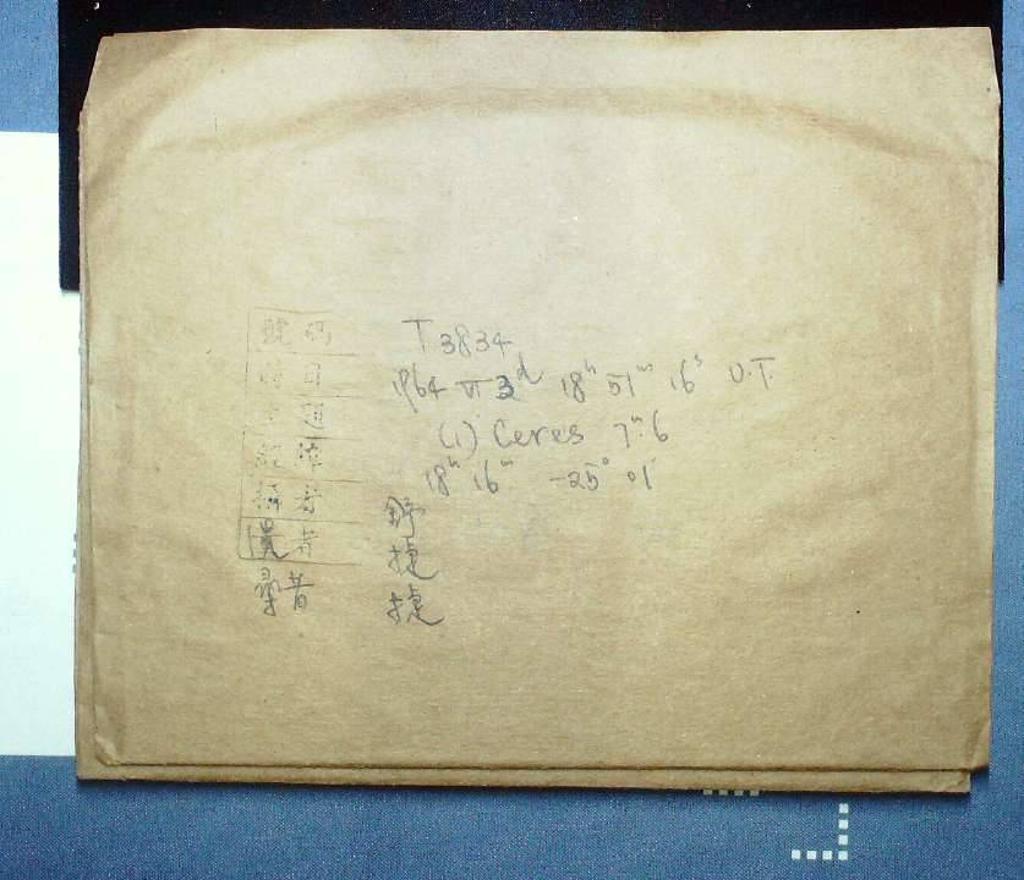 號碼 T 3834
日 1964 VI 3d 18h 51m 16s U.T.
(1) Ceres 7m.6
18h 16m -25° 01'
攝者 野
量者 捷
尋者 捷